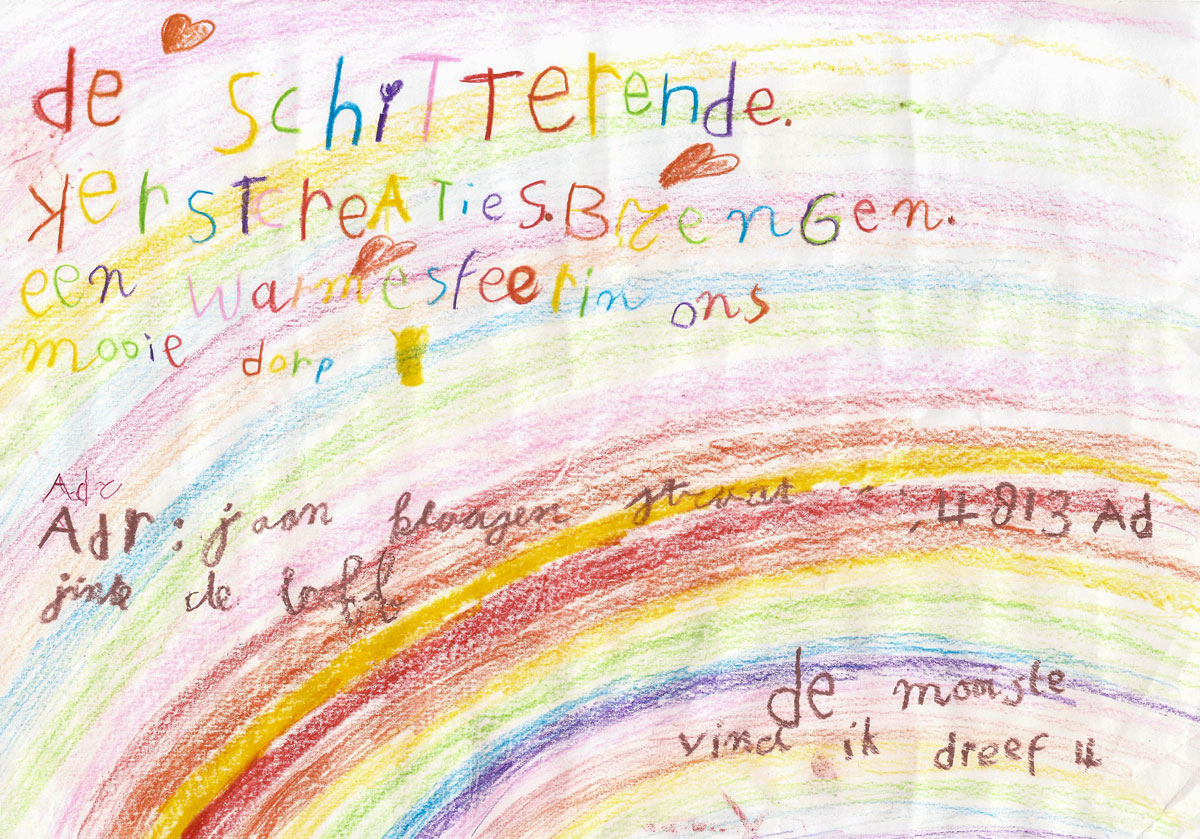 de SchiTTerende.
KersTcreATieS.BrenGen.
een warmesfeerin ons
mooie dorp
Adr
Adr: jaan klaazen straat 4813 Ad
jins de
de moogste
vind ik dreef 4